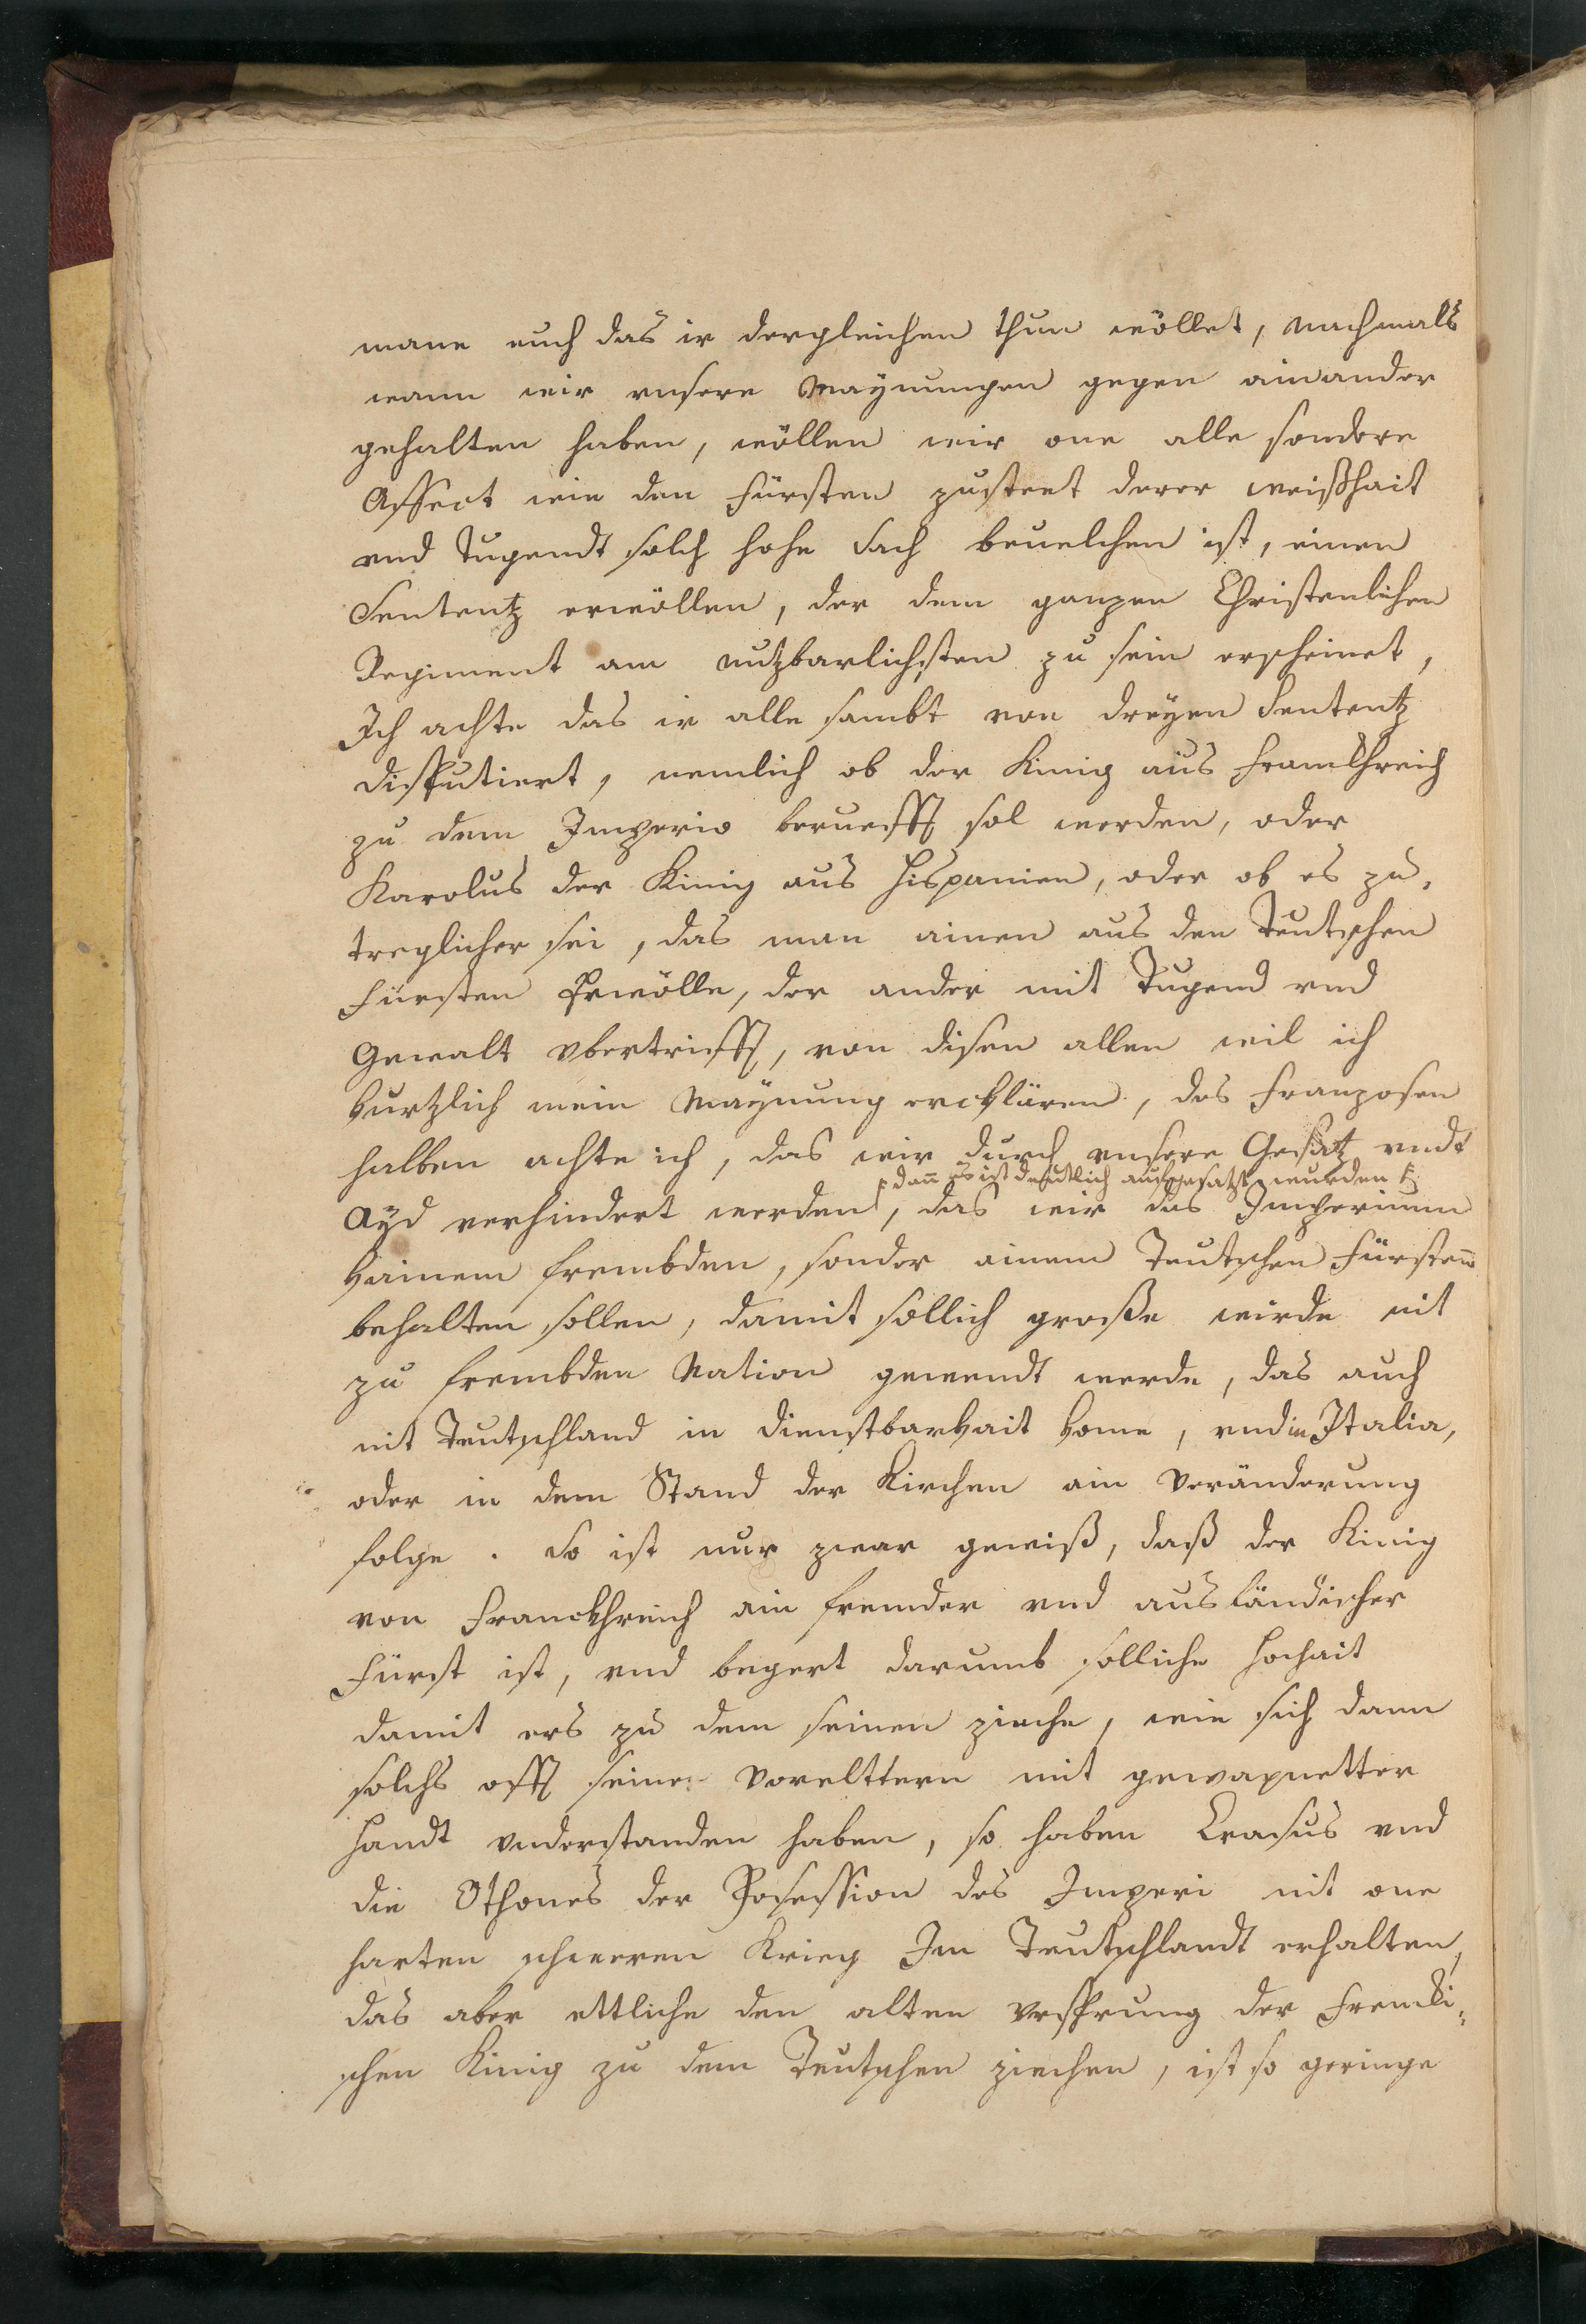 mane euch das ir dergleichen thun wöllet, nachmals
wann wir vnsere Maynungen gegen ainander
gehalten haben, wöllen wir one alle sondere
Affect wie den Fürsten zusteet derer weißhait
vnd Tugendt solch hohe Sach beuelchen ist, einen
Sententz erwöllen, der dem ganzen Christenlichen
Regiment am nutzbarlichsten zu sein erscheinet,
Ich achte das ir alle sambt von dreyen Sententz
disputiert, nemlich ob der Kinig aus Franckhreich
zu dem Imperio berueft sol werden, oder
Karolus der Kinig aus Hispanien, oder ob es zu,
treglicher sei, das man ainen aus den Teutschen
Fürsten Erwölle, der ander mit Tugend vnd
Gewalt vbertrifft, von disen allen wil ich
kurtzlich mein Maynung erckhlären, des Franzosen
halben achte ich, das wir durch vnsere Gesatz vndt
dan̄ es ist deutlich aufgesatzt wurden
Ayd verhindert werden, das wir das Imperium
kainem frembden, sonder ainem Teutschen Fürsten̄
behalten sollen, damit sollich große wirde nit
zu frembden Nation gewendt werde, das auch
nit Teutschland in dienstbarkait kome, vnd in Italia,
oder in dem Stand der Kirchen ain Veränderung
folge. So ist nur zwar gewiß, daß der Kinig
von Franckhreich ain fremder vnd ausländischer
Fürst ist, vnd begert darumb solliche Hochait
damit ers zu dem seinen zieche, wie sich dann
solchs offt seine Vorelttern mit gewapnetter
Handt vnderstanden haben, so haben Crasus vnd
die Othones der Posession des Imperi nit one
harten schweren Krieg Im Teutschlandt erhalten,
das aber ettliche den alten Vrsprung der Frencki,
schen Kinig zu dem Teutschen ziechen, ist so geringe